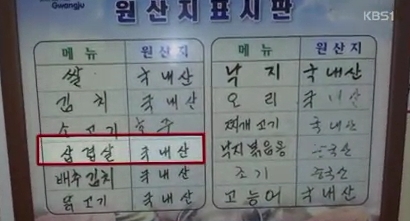 Gwangju
KBS1
원산지표시판
메뉴 원산지 메뉴 원산지
쌀 국내산 낙지 국내산
김치 국내산 오리 국내산
소고기 호주 찌개고기 국내산
삼겹살 국내산 낙지볶음용 중국산
배추김치 국내산 조기 중국산
닭고기 국내산 고등어 국내산